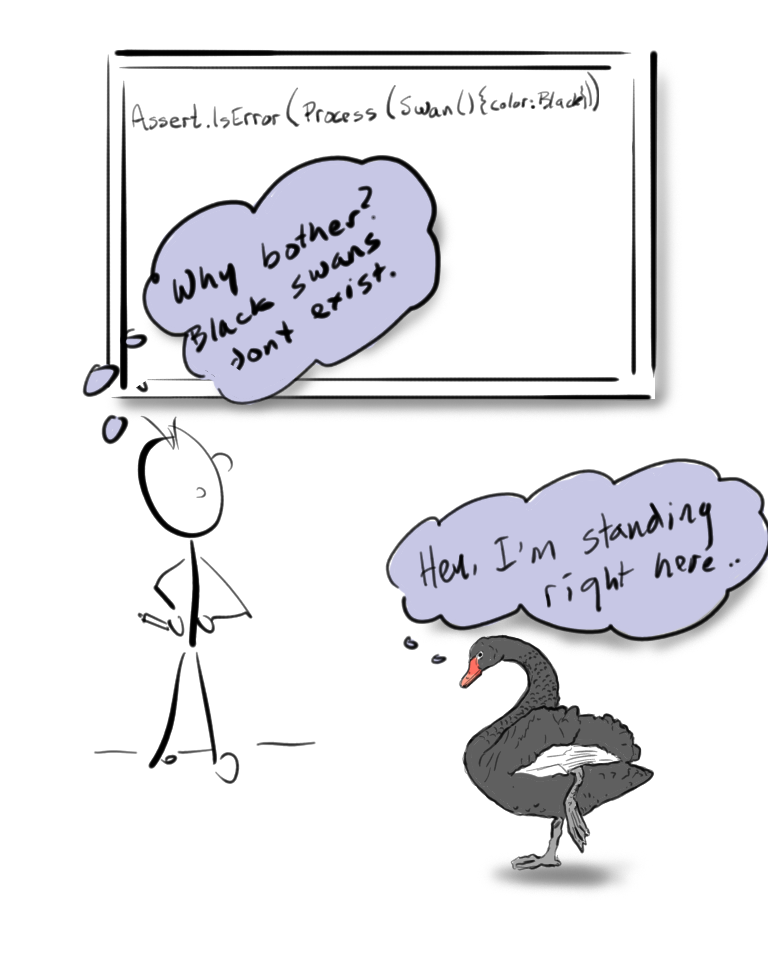 Assert.IsError(Process(Swan(){color:Black}))
Why bother?
Black swans
dont exist.
Hey, I'm standing
right here..